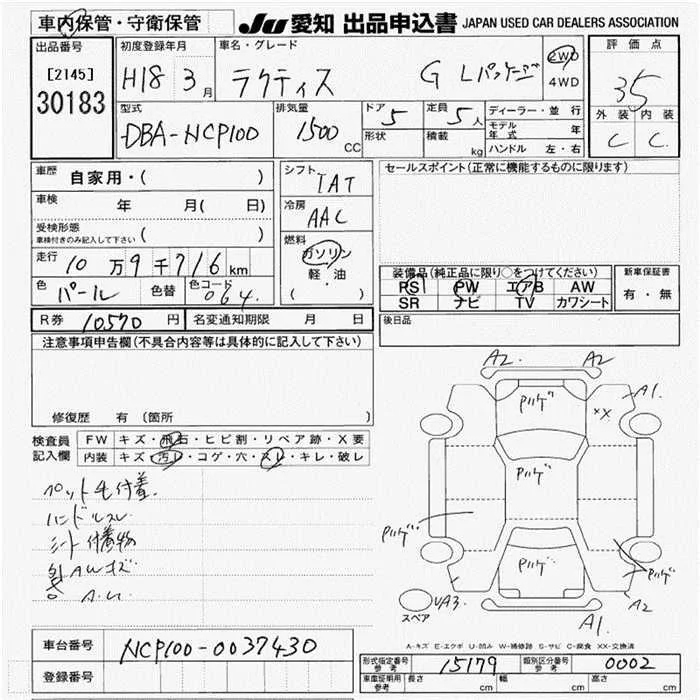 車内保管・守衛保管
JU 愛知 出品申込書 JAPAN USED CAR DEALERS ASSOCIATION
出品番号
[2145]
30183
初度登録年月
H18 3月
車名・グレード
ラクティス G Lパッケージ
2WD
4WD
評価点
3.5
外装 内装
C C
型式
DBA-NCP100
排気量
1500 CC
ドア 5
形状
定員 5人
積載 kg
ディーラー・並行
モデル年式 年
ハンドル 左・右
車歴 自家用・( )
車検 年 月( 日)
受検形態
車検付きのみ記入して下さい ( )
走行 10万9千716km
色 パール 色替 色コード 064
シフト IAT
冷房 AAC
燃料
ガソリン
軽・油
( )
セールスポイント(正常に機能するものに限ります)
装備品(純正品に限り○をつけてください)
PS PW エアB AW
SR ナビ TV カワシート
新車保証書
有・無
R券 10570円 名変通知期限 月 日
後日品
注意事項申告欄(不具合内容等は具体的に記入して下さい)
修復歴 有 (箇所 )
検査員記入欄
FW キズ・飛石・ヒビ割・リペア跡・X要
内装 キズ・汚レ・コゲ・穴・スレ・キレ・破レ
ペット毛付着
ハンドルスレ
シート付着物
A.Wキズ
A2 A2
A1
XX
Pハゲ
Pハゲ
Pハゲ
Pハゲ
Pハゲ
スペア
UA3
A2
A1
A-キズ E-エクボ U-凹み W-補修跡 S-サビ C-腐食 XX-交換済
車台番号 NCP100-0037430
登録番号
形式指定番号 参考 15179 類別区分番号 参考 0002
車庫証明用 参考 長さ cm 幅 cm 高さ cm